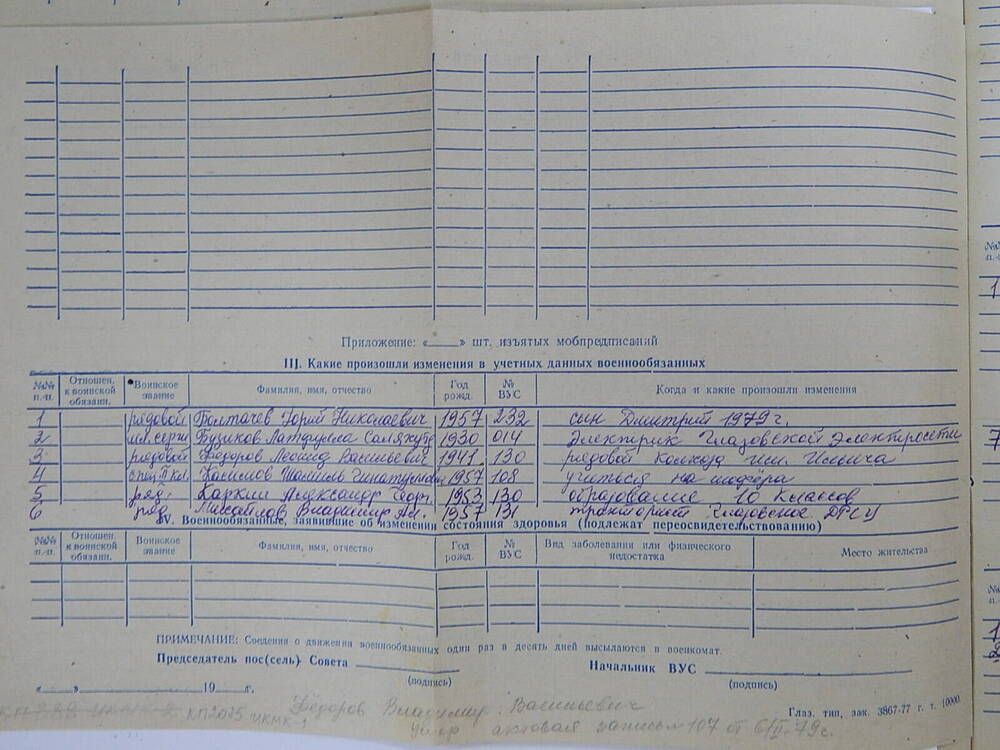 Приложение: «____» шт. изъятых мобпредписаний
III. Какие произошли изменения в учетных данных военнообязанных
№№ п.-п. Отношен. к воинской обязанн. Воинское звание Фамилия, имя, отчество Год рожд. № ВУС Когда и какие произошли изменения
1 рядовой Болтачев Юрий Николаевич 1957 232 сын Дмитрий 1979 г.
2 мл. серж Бузиков 1930 014 Электрик Глазовской Электросети
3 рядовой Федоров Леонид Васильевич 1941 130 рядовой колхоза им. Ильича
4 1957 108 учиться на шофёра
5 ряд. Каркин Александр Геор. 1953 130 образование 10 классов
6 ряд. Михайлов Владимир Ал. 1957 131 тракторист Глазовское ДРСУ
IV. Военнообязанные, заявившие об изменении состояния здоровья (подлежат переосвидетельствованию)
№№ п.-п. Отношен. к воинской обязанн. Воинское звание Фамилия, имя, отчество Год рожд. № ВУС Вид заболевания или физического недостатка Место жительства
ПРИМЕЧАНИЕ: Сведения о движении военнообязанных один раз в десять дней высылаются в военкомат.
Председатель пос(сель) Совета ________ Начальник ВУС ________
(подпись) (подпись)
«____» ________ 19___ г.
Глаз. тип, зак. 3867-77 г. т. 10000
КП2075 ИКМК-1 Федоров Владимир Васильевич
умер актовая запись 107 от 6/II-79г.
№№
п.-п.
1
7
№
п.-
1
2